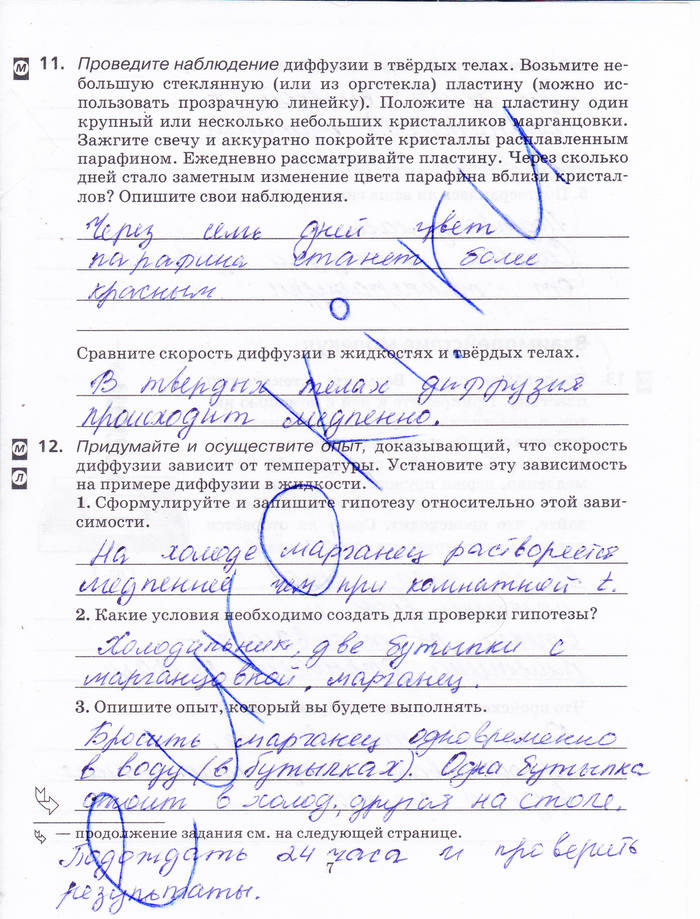 М 11. Проведите наблюдение диффузии в твёрдых телах. Возьмите не-
большую стеклянную (или из оргстекла) пластину (можно ис-
пользовать прозрачную линейку). Положите на пластину один
крупный или несколько небольших кристалликов марганцовки.
Зажгите свечу и аккуратно покройте кристаллы расплавленным
парафином. Ежедневно рассматривайте пластину. Через сколько
дней стало заметным изменение цвета парафина вблизи кристал-
лов? Опишите свои наблюдения.
Через семь дней цвет
парафина станет более
красным
Сравните скорость диффузии в жидкостях и твёрдых телах.
В твердых телах диффузия
происходит медленно.
М 12. Придумайте и осуществите опыт, доказывающий, что скорость
Л диффузии зависит от температуры. Установите эту зависимость
на примере диффузии в жидкости.
1. Сформулируйте и запишите гипотезу относительно этой зави-
симости.
На холоде марганец растворяется
медленнее чем при комнатной t.
2. Какие условия необходимо создать для проверки гипотезы?
Холодильник, две бутылки с
марганцовкой, марганец.
3. Опишите опыт, который вы будете выполнять.
Бросить марганец одновременно
в воду (в бутылках). Одна бутылка
стоит в холод, другая на столе.
— продолжение задания см. на следующей странице.
Подождать 24 часа и проверить
7
результаты.